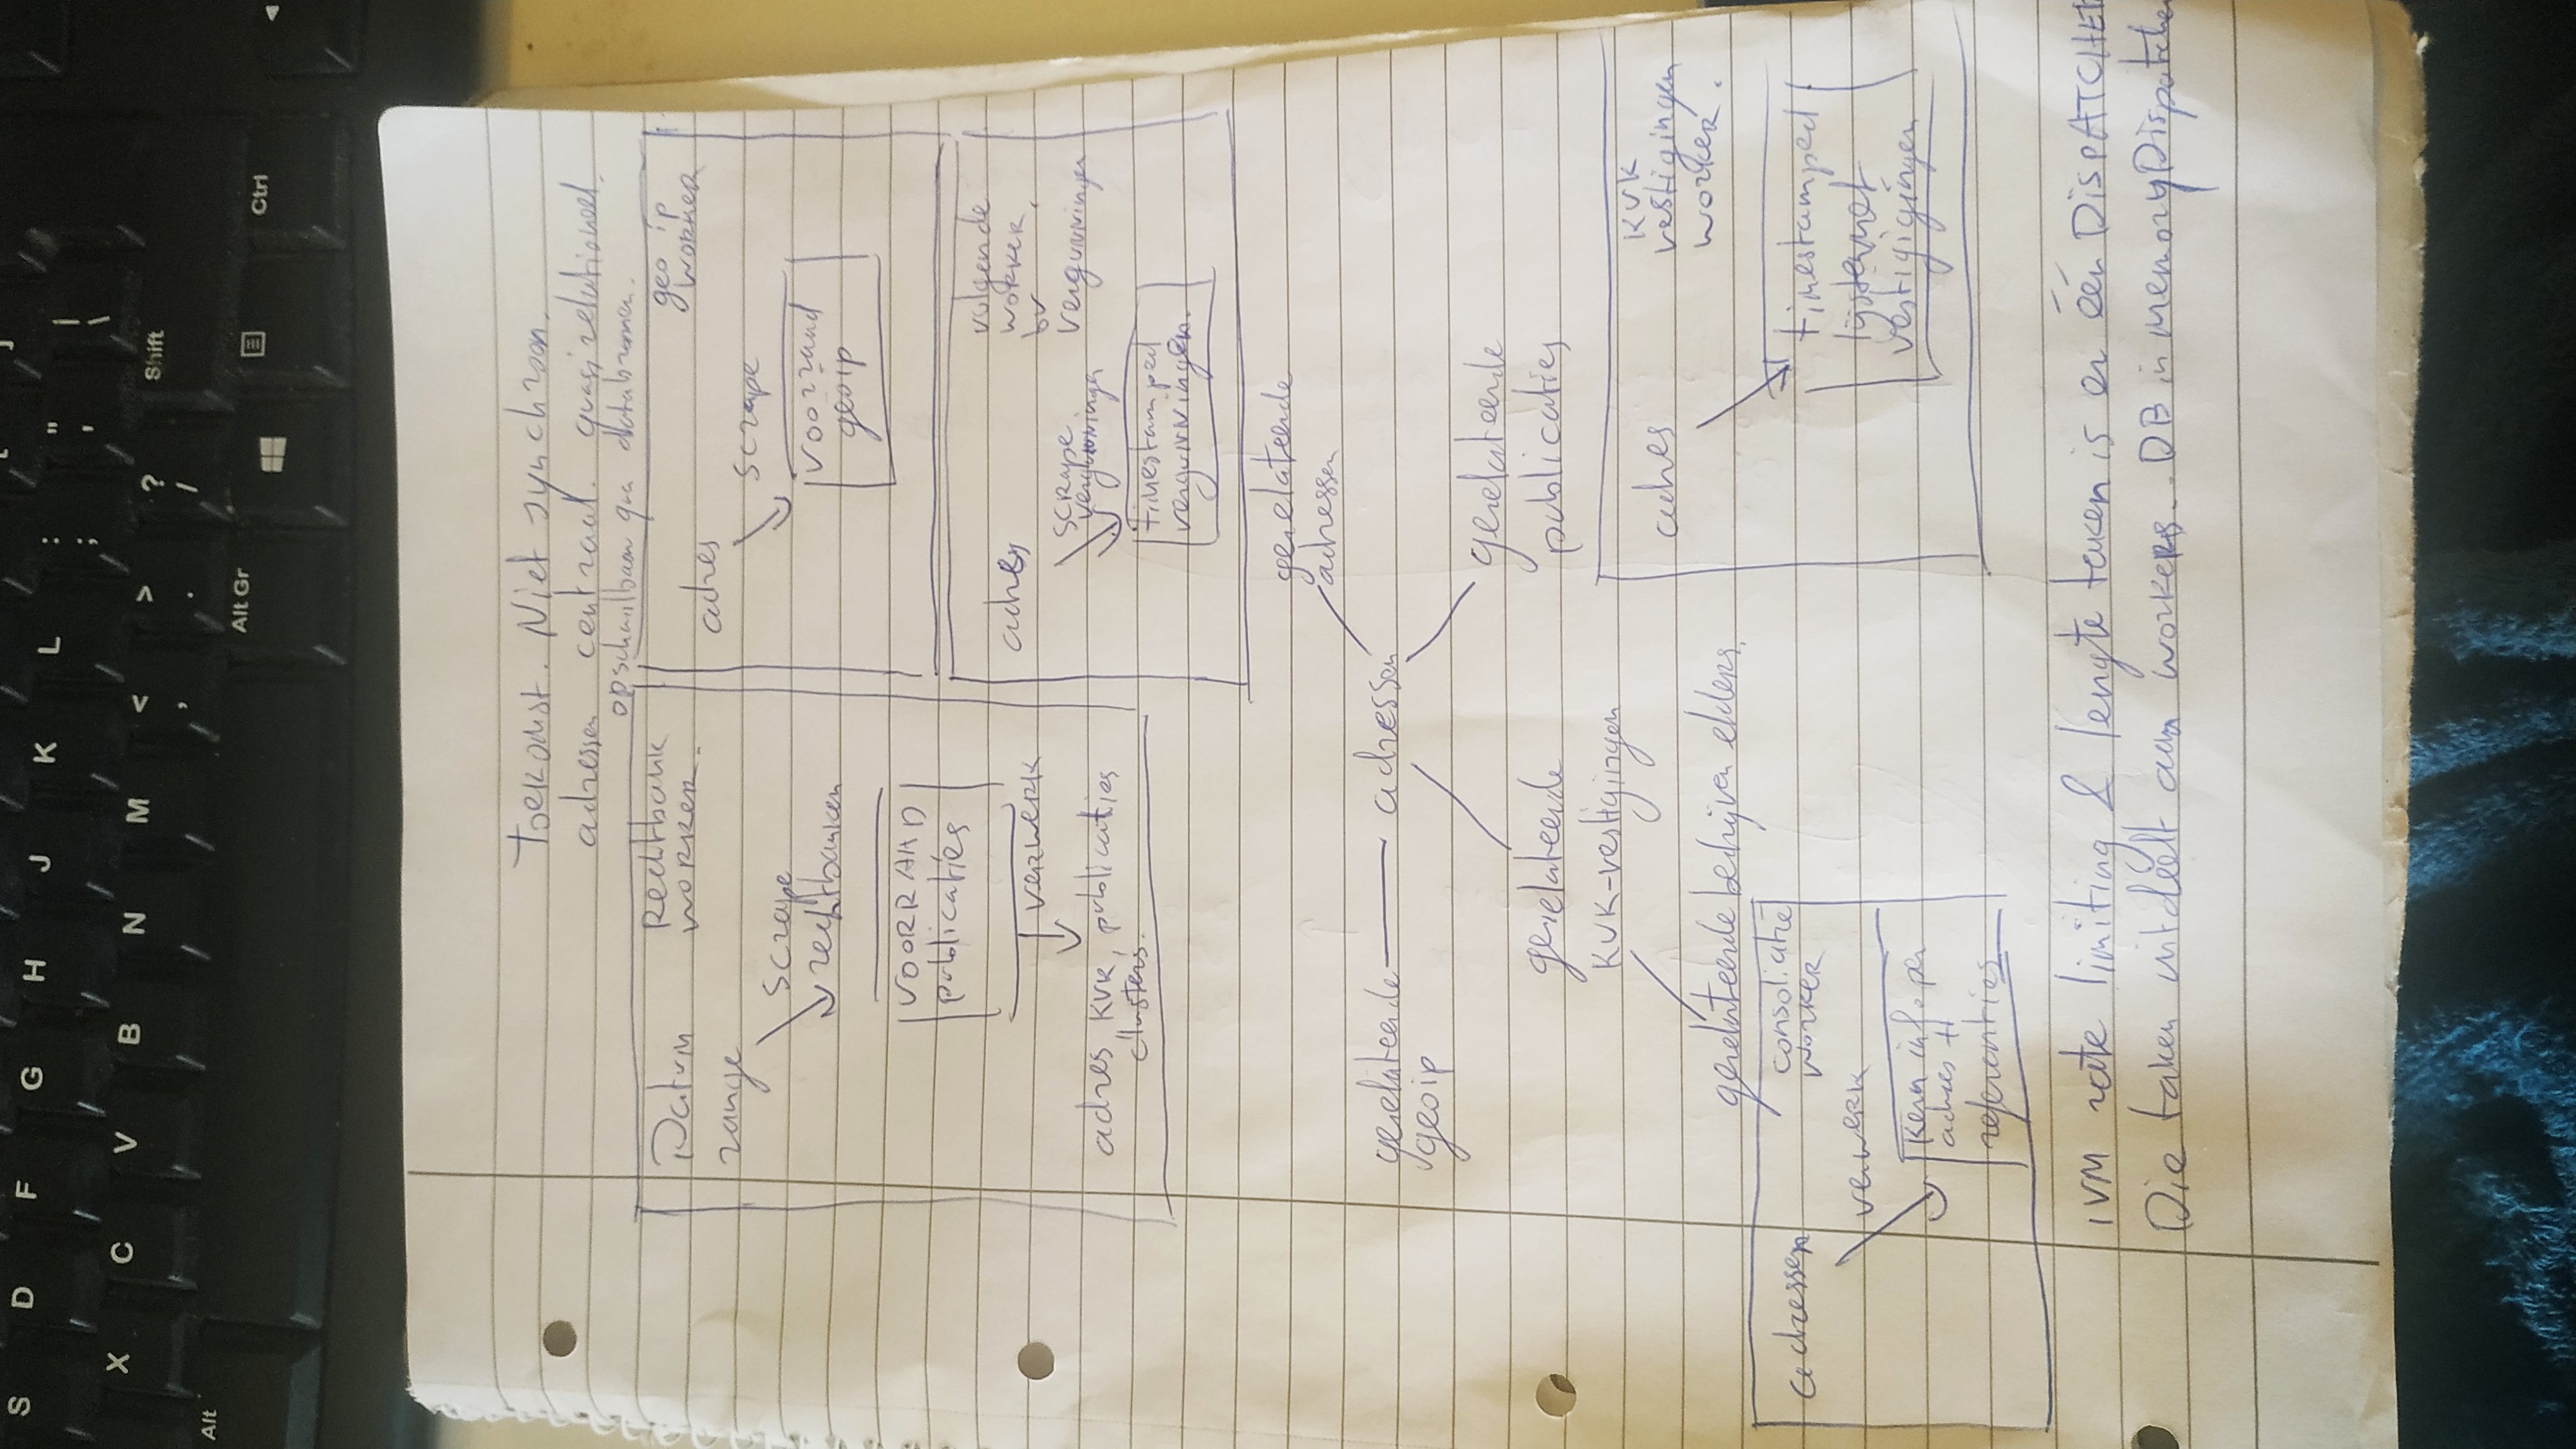 S D F G H J K L : ; " ' | \
X C V B N M < , > . ? / Shift
Alt Alt Gr Ctrl
Toekomst. Niet synchroon.
adressen centraal. quasi relationeel.
opschaalbaar qua databronnen.
Datum
range
Rechtbank
WORKER.
scrape
rechtbanken
VOORRAAD
publicaties
verwerk
adres, KVK, publicaties
clusters.
geo ip
WORKER
adres
scrape
voorraad
geoip
adres
volgende
WORKER,
bv
vergunningen
scrape
vergunningen
timestamped
vergunningen.
gerelateerde
adressen
gerelateerde
geoip
adressen
gerelateerde
publicaties
gerelateerde
KVK-vestigingen
gerelateerde bedrijven elders.
adres
KVK
vestigingen
worker.
timestamped
lijsten met
vestigigingen
adressen
consolidatie
WORKER
verwerk
Kern info per
adres +
referenties
IVM rate limiting & lengte taken is er één DISPATCHER
Die taken uitdeelt aan workers.. DB in memory Dispatcher